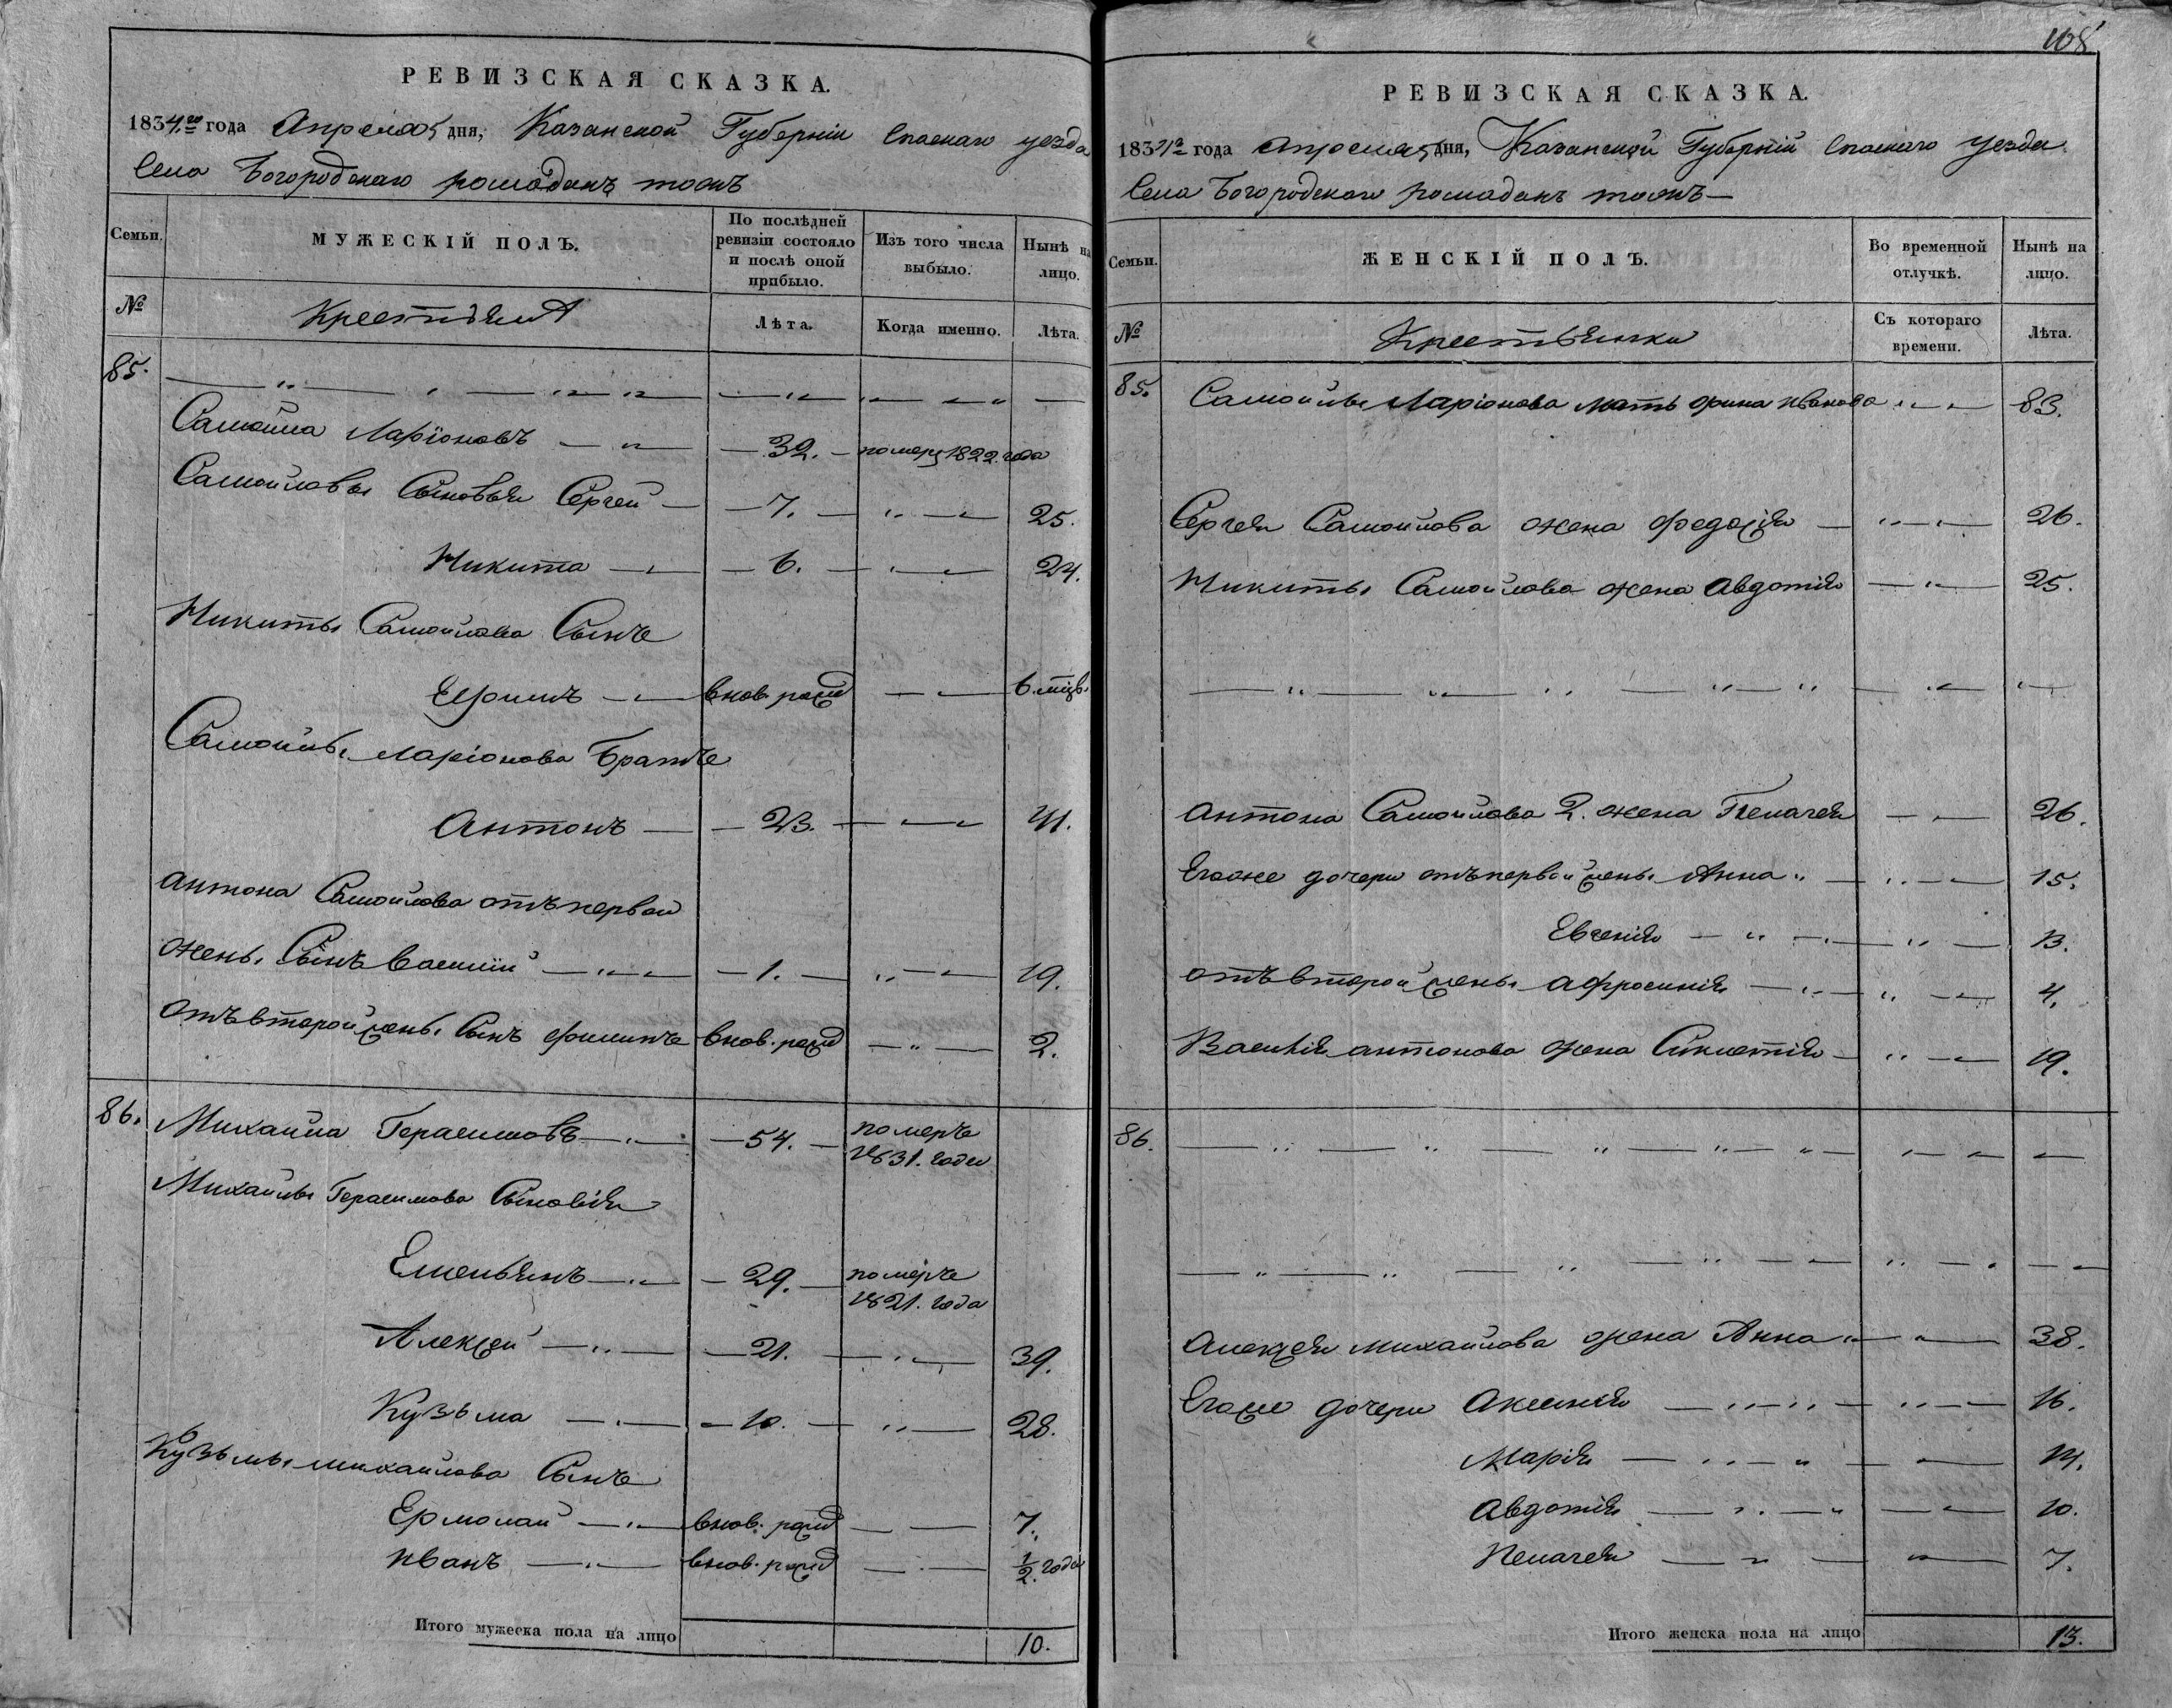 РЕВИЗСКАЯ СКАЗКА.
1834.го года Апреля 5 дня, Казанской Губернiи Спаскаго уезда
Села Богородскаго
Семьи.
МУЖЕСКIЙ ПОЛЪ.
По послѣдней ревизiи состояло и послѣ оной прибыло.
Изъ того числа выбыло.
Нынѣ на лицо.
№
Крестьяня
Лѣта.
Когда именно.
Лѣта.
85.
Самойла Ларiоновъ 32. померъ 1822 года
Самойловы Сыновья Сергей 7. 25.
Никита 6. 24.
Никиты Самойлова Сынъ
Ефимъ внов. рожд 6. мцв
Самойлы Ларiонова Братъ
Антонъ 23. 41.
Антона Самойлова отъ первой
жены Сынъ Василiй 1. 19.
отъ второй жены Сынъ Филипъ внов. рожд 2.
86. Михайла Герасимовъ 54. померъ 1831. года
Михайлы Герасимова Сыновiя
Емельянъ 29. померъ 1821. года
Алексей 21. 39.
Кузьма 10. 28.
Кузьмы михайлова Сынъ
Ермолай внов. рожд 7.
иванъ внов. рожд 1/2. года
Итого мужеска пола на лицо 10.
108
РЕВИЗСКАЯ СКАЗКА.
1834го года апреля 5 дня, Казанской Губернiй Спаскаго Уезда
Села Богородскаго
Семьи.
ЖЕНСКIЙ ПОЛЪ.
Во временной отлучкѣ.
Нынѣ на лицо.
№
Крестьянки
Съ котораго времени.
Лѣта.
85. Самойлы Ларiонова мать орина иванова 83.
Сергея Самойлова жена федосiя 26.
Никиты Самойлова жена авдотiя 25.
антона Самойлова 2. жена Пелагея 26.
Егоже дочери отъ первой жены Анна 15.
Евгенiя 13.
отъ второй жены афросинiя 4.
Василiя антонова жена Сиклетiя 19.
86.
алексея михайлова жена Анна 38.
Егоже дочери Аксинiя 16.
Марiя 14.
авдотiя 10.
Пелагея 7.
Итого женска пола на лицо 13.